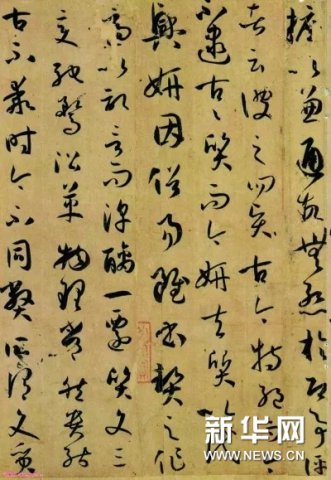 摭以兼通故無慙於即事評
者云彼之四賢古今特絕而今
不逮古〻質而今妍夫質以代
興妍因俗易雖書契之作
適以記言而淳醨一遷質文三
變馳鶩沿革物理常然貴能
古不乖時今不同弊所謂文質
新华网